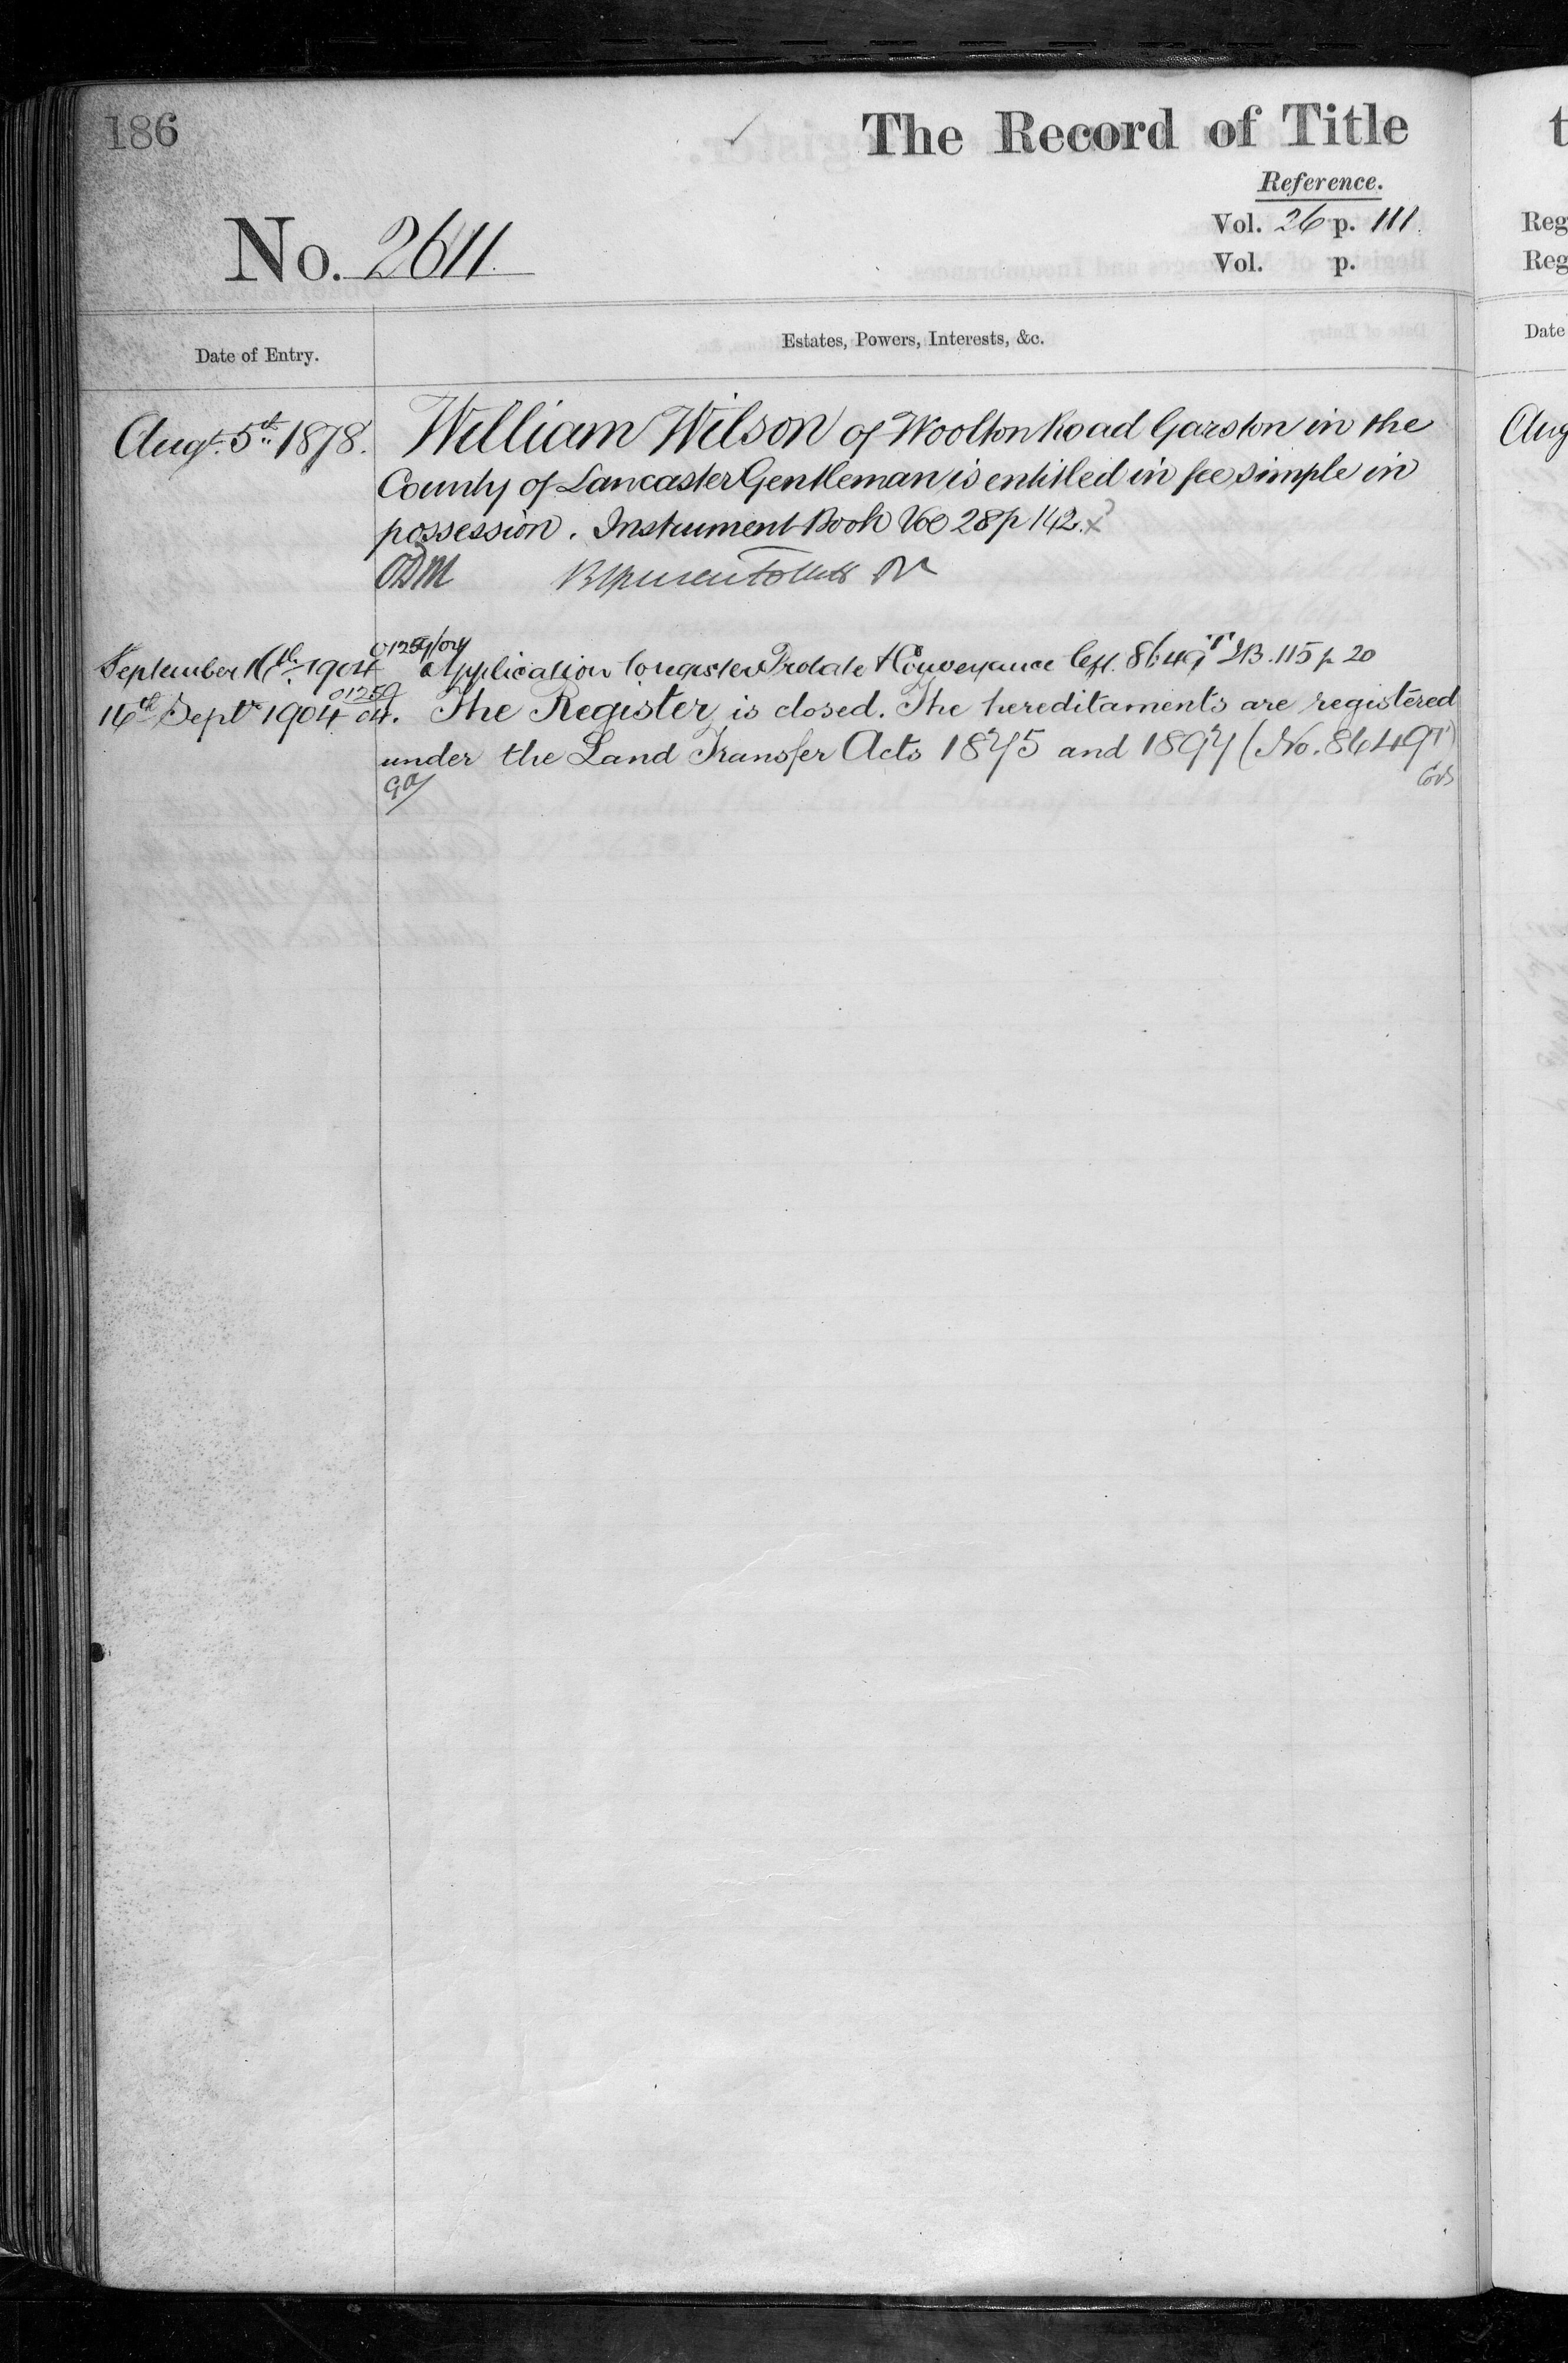 186
The Record of Title
Reference.
No. 2611.
Vol. 26 p. 111.
Vol. p.
Date of Entry.
Estates, Powers, Interests, &c.
Augt. 5th 1878.
William Wilson of Woolton Road Garston in the
County of Lancaster Gentleman is entitled in fee simple in
possession. Instrument Book Vol 28 p 142.
September 16th 1904
Application to register Probate & Conveyance 8649 115 p 20
16th Septr 1904
01259
04.
The Register is closed. The hereditaments are registered
under the Land Transfer Acts 1875 and 1897 (No. 8649T)
t
Reg
Reg
Date
Aug